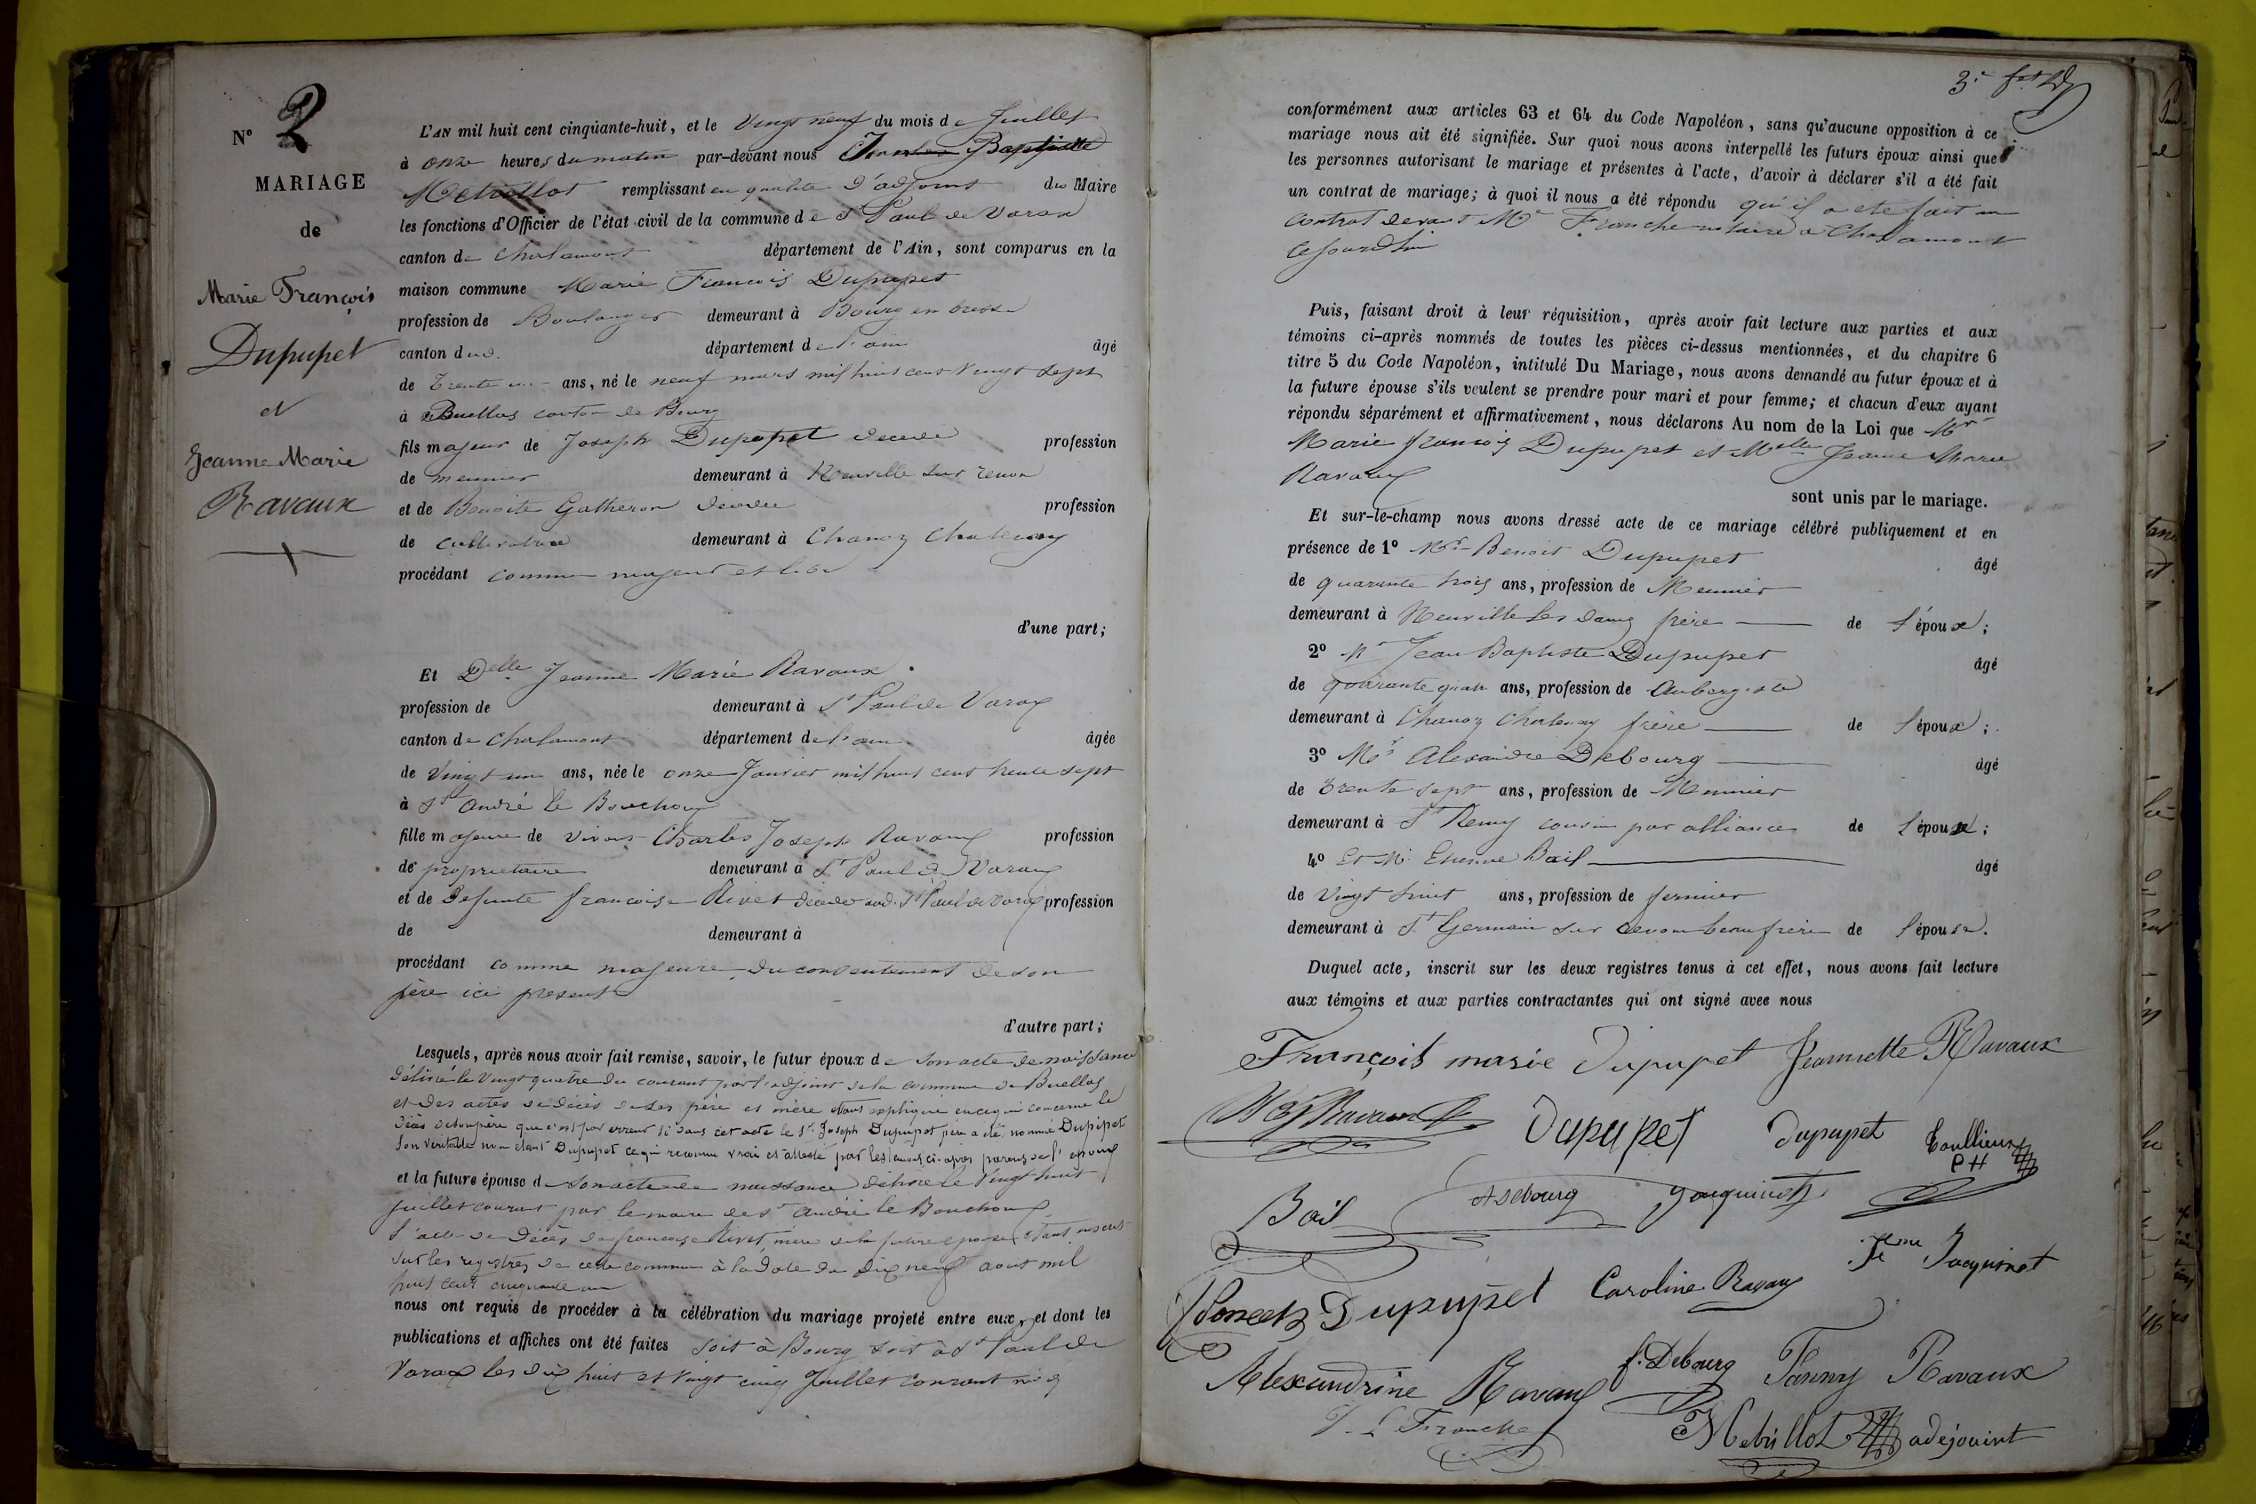 N° 2
MARIAGE
de
Marie François
Dupupet
et
Jeanne Marie
Ravaux
L'AN mil huit cent cinquante-huit, et le Vingt neuf du mois de Juillet
à onze heures du matin par-devant nous Baptiste
remplissant en qualité d'adjoint du Maire
les fonctions d'Officier de l'état civil de la commune de St Paul de Varax
canton de Chalamont département de l'Ain, sont comparus en la
maison commune Marie François Dupupet
profession de Boulanger demeurant à Bourg en bresse
canton dud. département de l'ain âgé
de Trente un ans, né le neuf mars mil huit cent Vingt sept
à Buellas canton de Bourg
fils majeur de Joseph Dupupet décédé profession
de meunier demeurant à Neuville sur renon
et de Benoite Gatheron décédée profession
de cultivatrice demeurant à Chanoz Chatenay
procédant comme majeur et libre
d'une part;
Et Delle Jeanne Marie Ravaux.
profession de demeurant à St Paul de Varax
canton de Chalamont département de l'ain âgée
de Vingt un ans, née le onze Janvier mil huit cent trente sept
à St André le Bouchoux
fille majeure de vivant Charles Joseph Ravaux profession
de propriétaire demeurant à St Paul de Varax
et de defunte françoise Rivet décédée aud. St Paul de Varax profession
de demeurant à
procédant comme majeure du consentement de son
père ici present
d'autre part;
Lesquels, après nous avoir fait remise, savoir, le futur époux de son acte de naissance
délivré le Vingt quatre du courant par l'adjoint de la commune de Buellas
et des actes de décès de ses père et mère étant expliqué en ce qui concerne le
décès de son père que c'est par erreur si dans cet acte le Sr Joseph Dupupet père a été nommé Dupipet
son veritable nom étant Dupupet ce qui reconnu vrai et attesté par les témoins ci-après parens de l'époux
et la future épouse de son acte de naissance délivré le Vingt huit
Juillet courant par le maire de St André le Bouchoux
l'acte de décès de françoise Rivet, mère de la future épouse étant inscrit
sur les registres de cette commune à la date du dix neuf aout mil
huit cent cinquante un
nous ont requis de procéder à la célébration du mariage projeté entre eux, et dont les
publications et affiches ont été faites soit à Bourg soit à St Paul de
Varax les dix huit et Vingt cinq Juillet courant mois
3e
conformément aux articles 63 et 64 du Code Napoléon, sans qu'aucune opposition à ce
mariage nous ait été signifiée. Sur quoi nous avons interpellé les futurs époux ainsi que
les personnes autorisant le mariage et présentes à l'acte, d'avoir à déclarer s'il a été fait
un contrat de mariage; à quoi il nous a été répondu qu'il a été fait un
contrat devant Me Franche notaire à Chalamont
cejourd'hui
Puis, faisant droit à leur réquisition, après avoir fait lecture aux parties et aux
témoins ci-après nommés de toutes les pièces ci-dessus mentionnées, et du chapitre 6
titre 5 du Code Napoléon, intitulé Du Mariage, nous avons demandé au futur époux et à
la future épouse s'ils veulent se prendre pour mari et pour femme; et chacun d'eux ayant
répondu séparément et affirmativement, nous déclarons Au nom de la Loi que Mr
Marie françois Dupupet et Melle Jeanne Marie
Ravaux
sont unis par le mariage.
Et sur-le-champ nous avons dressé acte de ce mariage célébré publiquement et en
présence de 1° Mr Benoit Dupupet âgé
de quarante trois ans, profession de Meunier
demeurant à Neuville les dames frère de l'époux;
2° Mr Jean Baptiste Dupupet âgé
de quarante quatre ans, profession de Aubergiste
demeurant à Chanoz Chatenay frère de l'époux;
3° Mr Alexandre Debourg âgé
de trente sept ans, profession de Meunier
demeurant à St Remy cousin par alliance de l'époux;
4° Et Mr Etienne Bail âgé
de Vingt huit ans, profession de fermier
demeurant à St Germain sur renom beau frère de l'épouse.
Duquel acte, inscrit sur les deux registres tenus à cet effet, nous avons fait lecture
aux témoins et aux parties contractantes qui ont signé avec nous
François marie Dupupet Jeannette Ravaux
Ravaux Dupupet Dupupet
Bail Debourg Jaquinot
Jacquinot
Dupupet Caroline Ravaux
Alexandrine Ravaux f. Debourg Fanny Ravaux
Franche
Metrillot adejouint